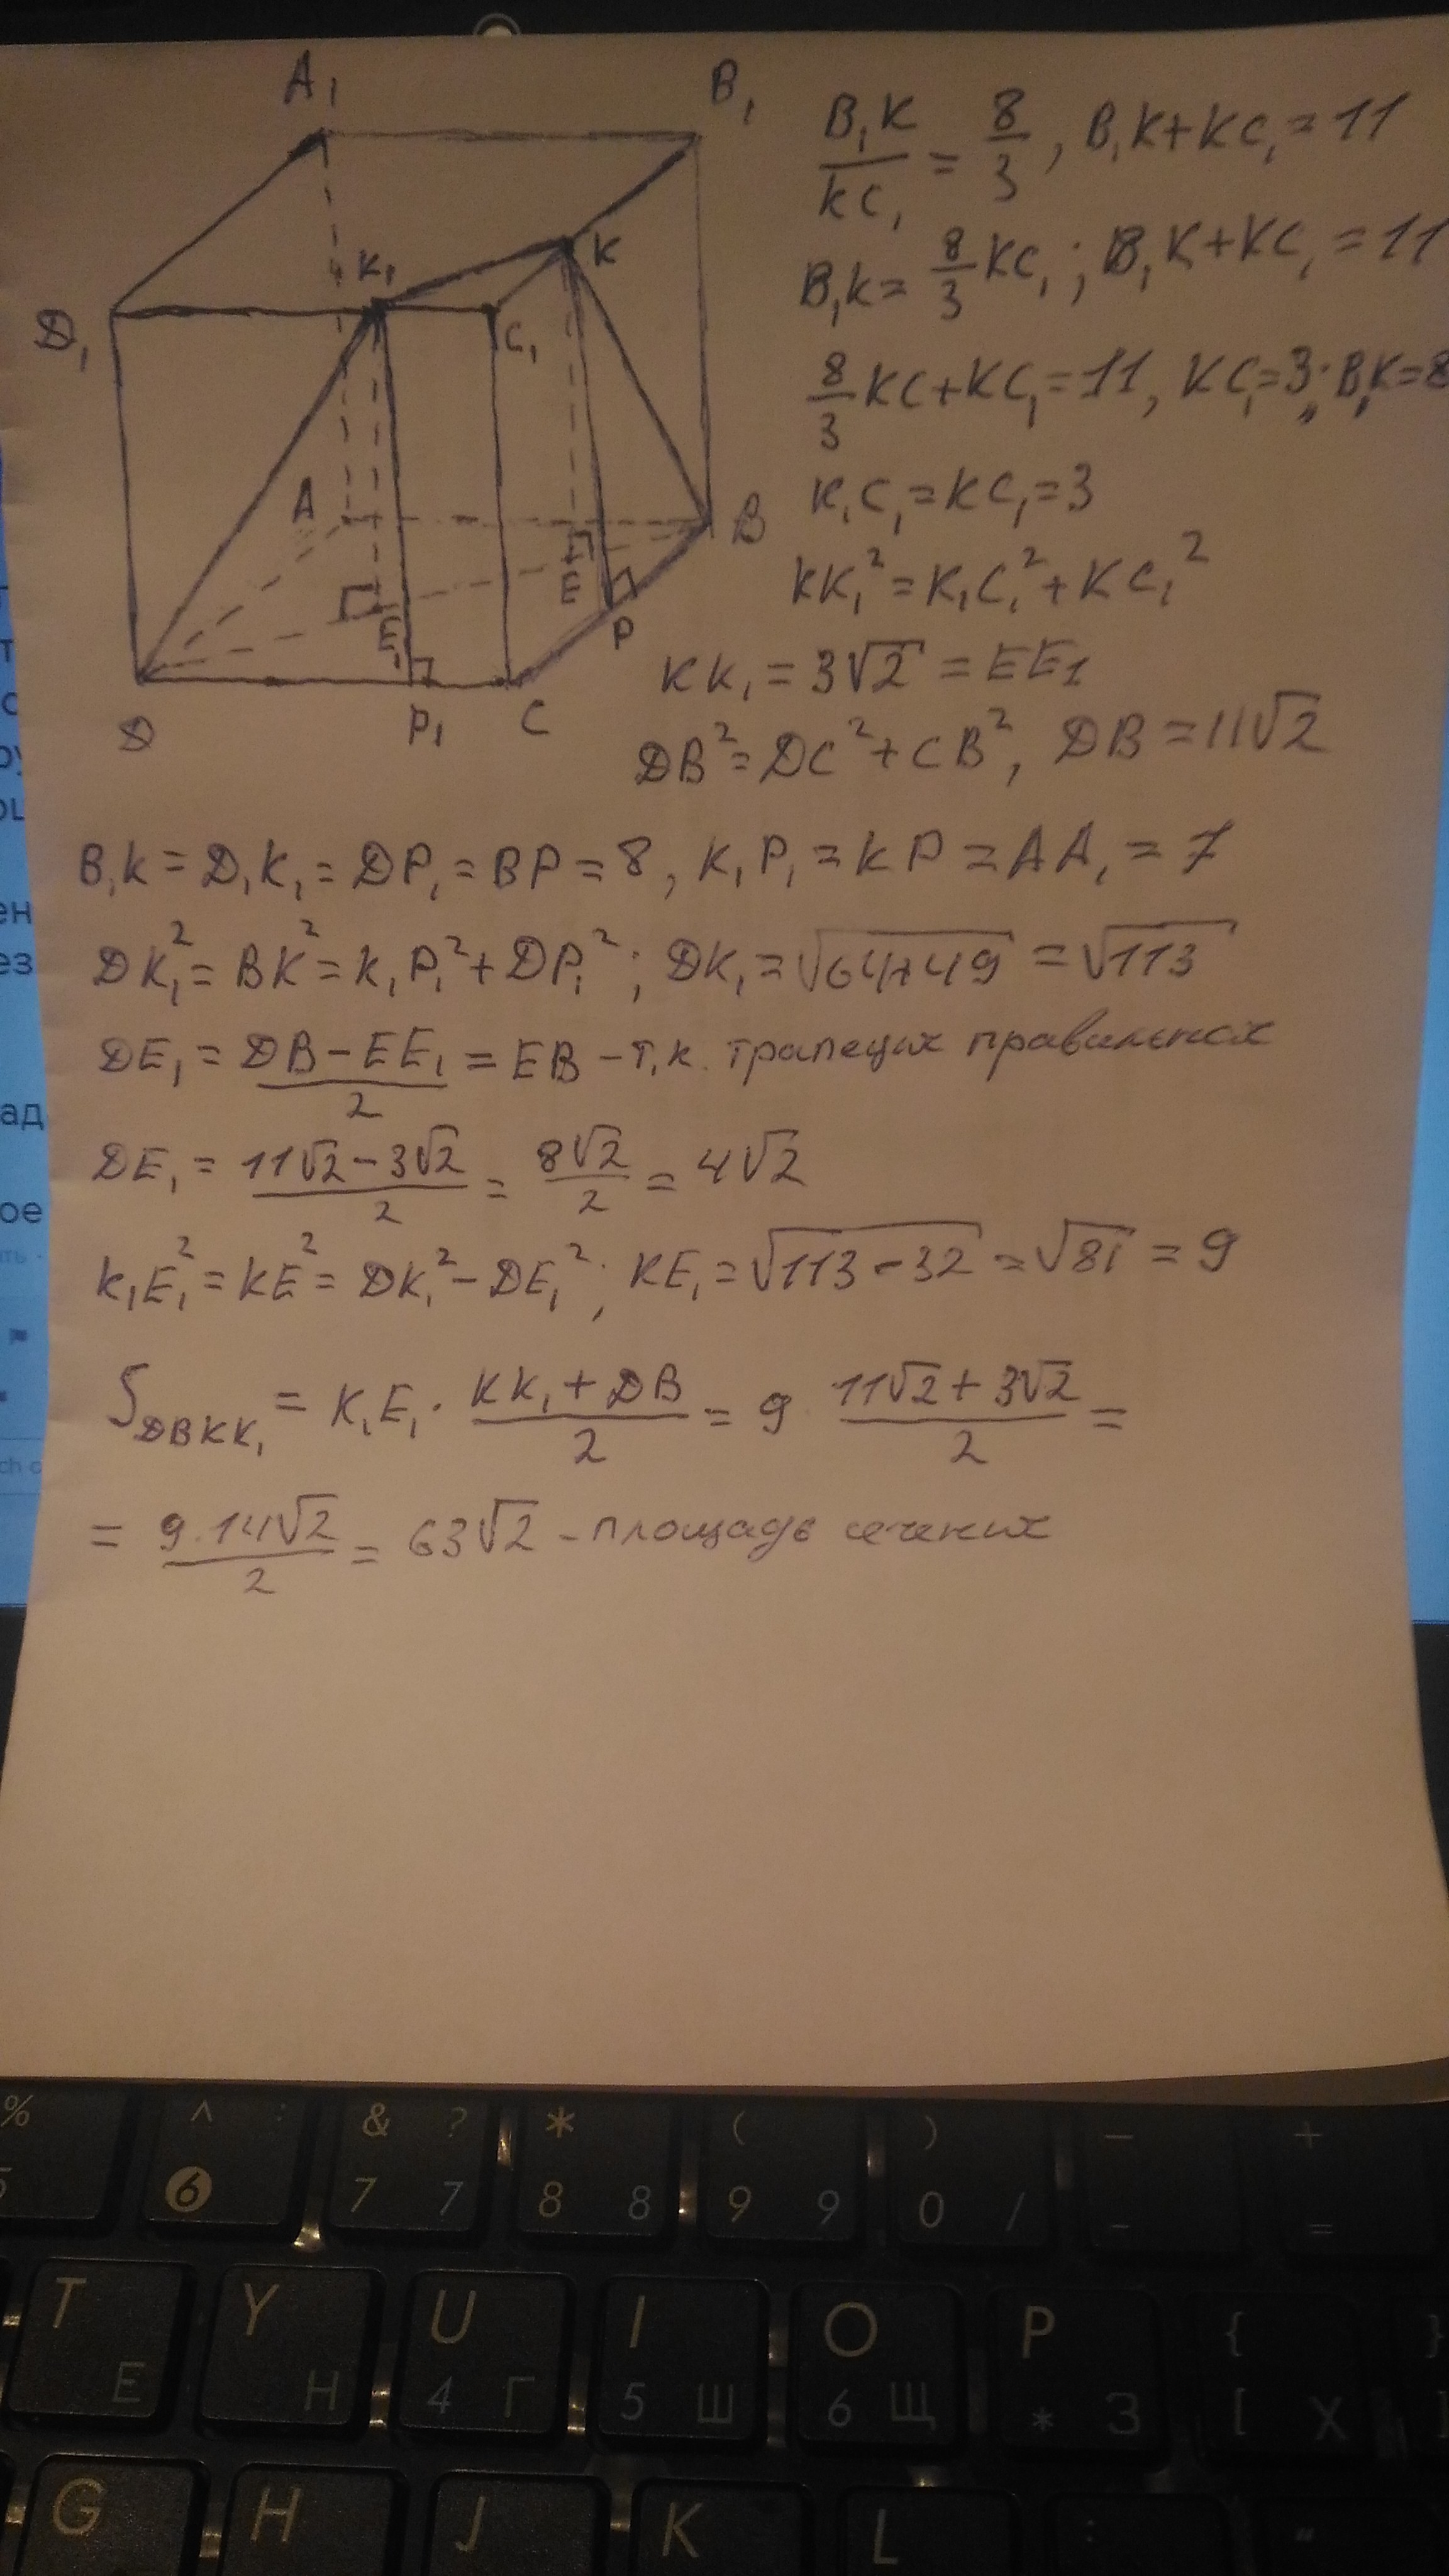 A₁
B₁
D₁
K₁
K
C₁
A
B
E
E₁
P
D
P₁
C
B₁K/KC₁ = 8/3, B₁K+KC₁=11
B₁K= 8/3 KC₁; B₁K+KC₁=11
8/3 KC+KC₁=11, KC₁=3; B₁K=8
K₁C₁=KC₁=3
KK₁²=K₁C₁²+KC₁²
KK₁=3√2=EE1
DB²=DC²+CB², DB=11√2
B₁K=D₁K₁=DP₁=BP=8, K₁P₁=KP=AA₁=7
DK₁²=BK²=K₁P₁²+DP₁²; DK₁=√64+49=√113
DE₁=(DB-EE₁)/2=EB-т.к. трапеция правильная
DE₁=(11√2-3√2)/2=8√2/2=4√2
K₁E₁²=KE²=DK₁²-DE₁²; KE₁=√113-32=√81=9
S DBKK₁=K₁E₁·(KK₁+DB)/2=9·(11√2+3√2)/2=
=9·14√2/2=63√2-площадь сечения
%
5
^ :
6
& ?
7 7
*
8 8
(
9 9
)
0 /
—
-
+
=
T
E
Y
Н
U
4 Г
I
5 Ш
O
6 Щ
P
* З
{
[ Х
}
G
H
J
K
L
:
"